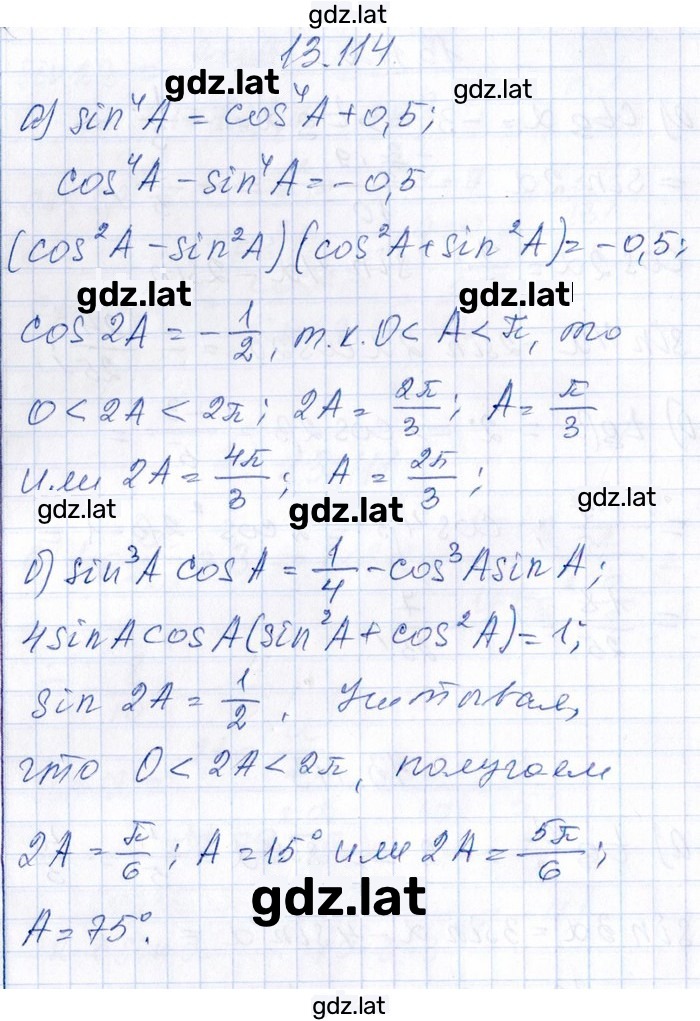 gdz.lat
13.114
gdz.lat gdz.lat
а) sin⁴A = cos⁴A + 0,5;
cos⁴A - sin⁴A = - 0,5
(cos²A - sin²A)(cos²A + sin²A) = - 0,5;
gdz.lat gdz.lat
cos 2A = - 1/2, т.к. 0 < A < π, то
0 < 2A < 2π; 2A = 2π/3; A = π/3
или 2A = 4π/3; A = 2π/3;
gdz.lat gdz.lat gdz.lat
б) sin³A cos A = 1/4 - cos³A sin A;
4 sin A cos A (sin²A + cos²A) = 1;
sin 2A = 1/2. Учитывая,
что 0 < 2A < 2π, получаем
2A = π/6; A = 15° или 2A = 5π/6;
gdz.lat
A = 75°.
gdz.lat